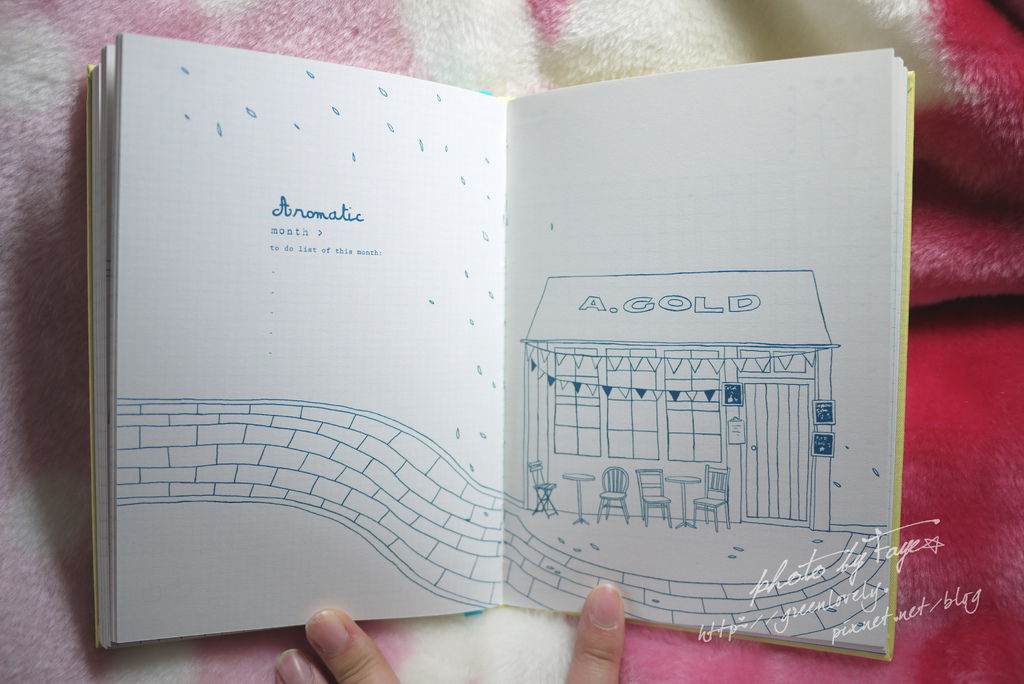 Aromatic
month >
to do list of this month:
-
-
-
-
-
A. GOLD
photo by Faye
http://greenlovely.
pixnet.net/blog